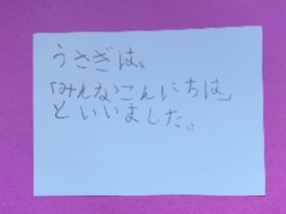 うさぎは。
「みんなこんにちは」
といいました。